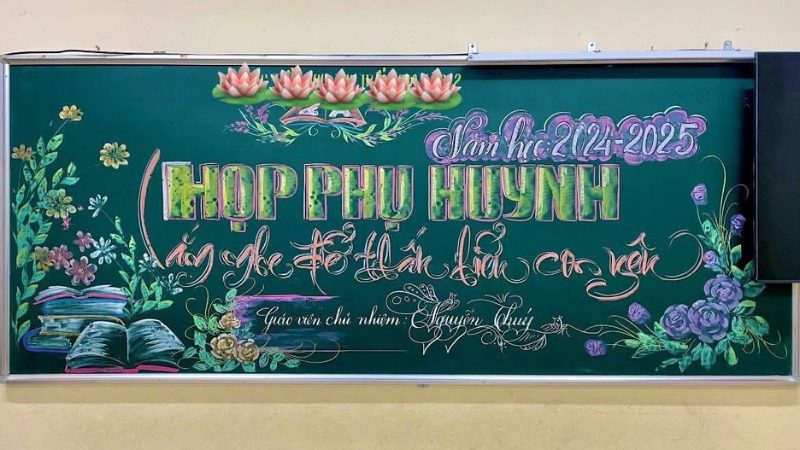 Năm học: 2024-2025
HỌP PHỤ HUYNH
Lắng nghe để thấu hiểu con yêu
Giáo viên chủ nhiệm: Nguyễn Thuý